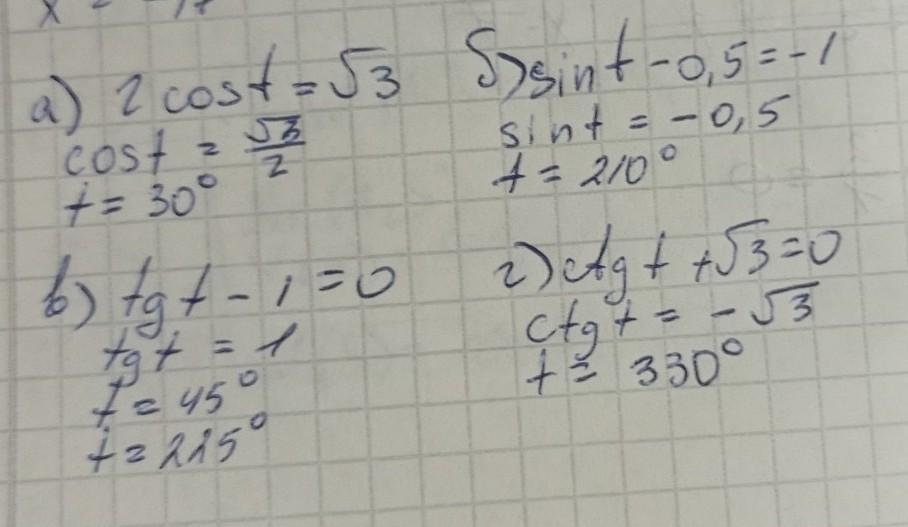 а) 2 cos t = √3
cos t = √3/2
t = 30°
б) sin t - 0,5 = -1
sin t = -0,5
t = 210°
в) tg t - 1 = 0
tg t = 1
t = 45°
t = 225°
г) ctg t + √3 = 0
ctg t = -√3
t = 330°